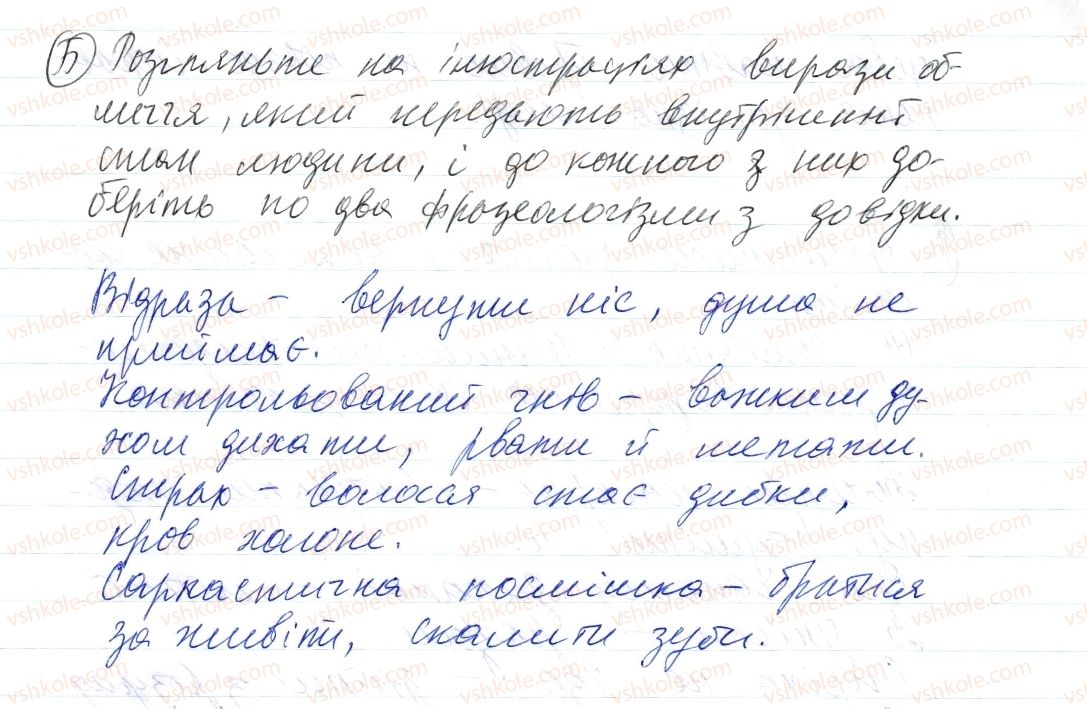 5 Розгляньте на ілюстраціях вирази об-
личчя, який передають внутрішній
стан людини, і до кожного з них до-
беріть по два фразеологізми з довідки.
Відраза - вернути ніс, душа не
приймає.
Контрольований гнів - важким ду-
хом дихати, рвати й метати.
Страх - волосся стає дибки,
кров холоне.
Саркастична посмішка - братися
за живіт, скалити зуби.
vshkole.com